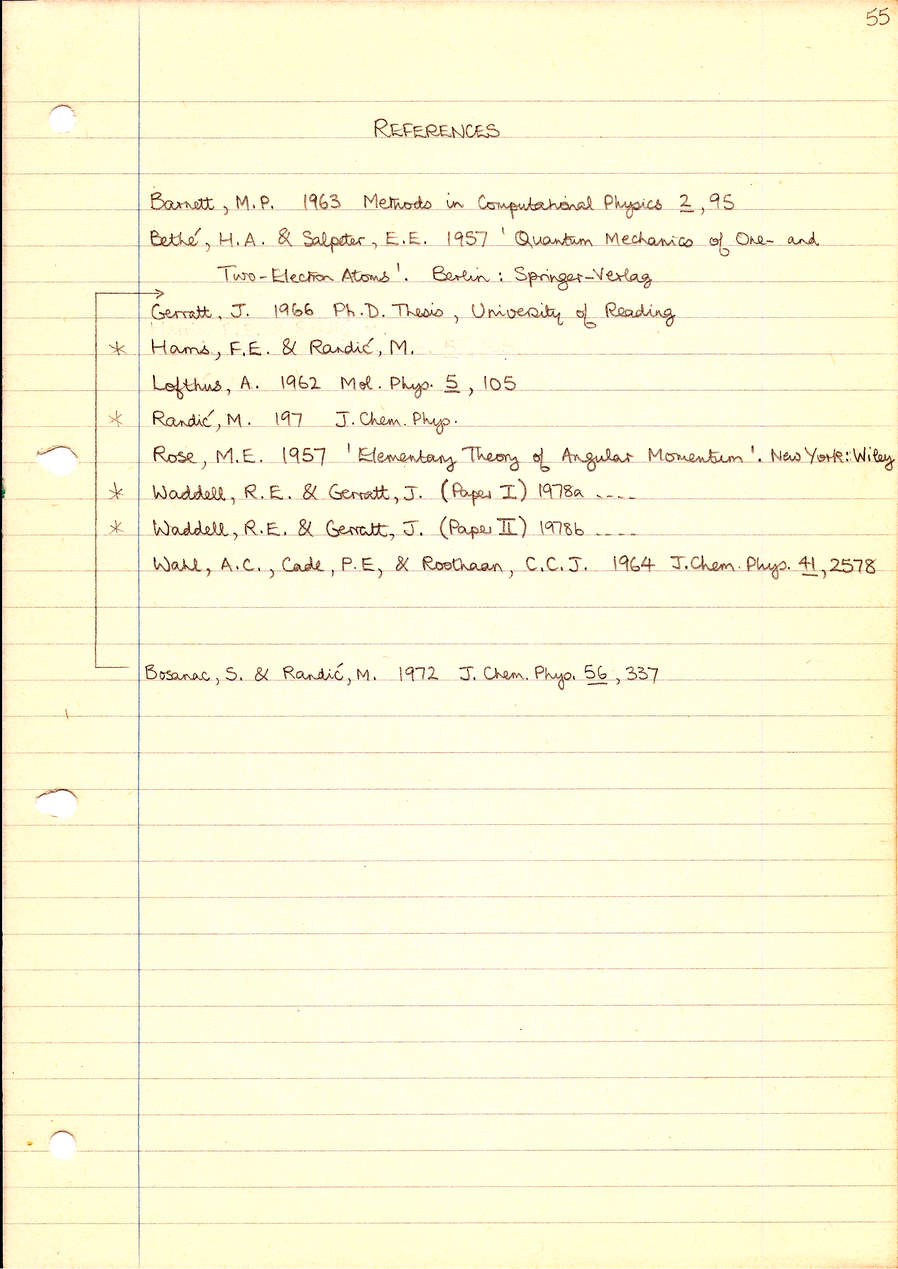 55
REFERENCES
Barnett, M.P. 1963 Methods in Computational Physics 2, 95
Bethé, H.A. & Salpeter, E.E. 1957 'Quantum Mechanics of One- and
Two-Electron Atoms'. Berlin: Springer-Verlag
Gerratt, J. 1966 Ph.D. Thesis, University of Reading
* Harris, F.E. & Randić, M.
Lofthus, A. 1962 Mol. Phys. 5, 105
* Randić, M. 197 J. Chem. Phys.
Rose, M.E. 1957 'Elementary Theory of Angular Momentum'. New York: Wiley
* Waddell, R.E. & Gerratt, J. (Paper I) 1978a ....
* Waddell, R.E. & Gerratt, J. (Paper II) 1978b ....
Wahl, A.C., Cade, P.E, & Roothaan, C.C.J. 1964 J. Chem. Phys. 41, 2578
Bosanac, S. & Randić, M. 1972 J. Chem. Phys. 56, 337